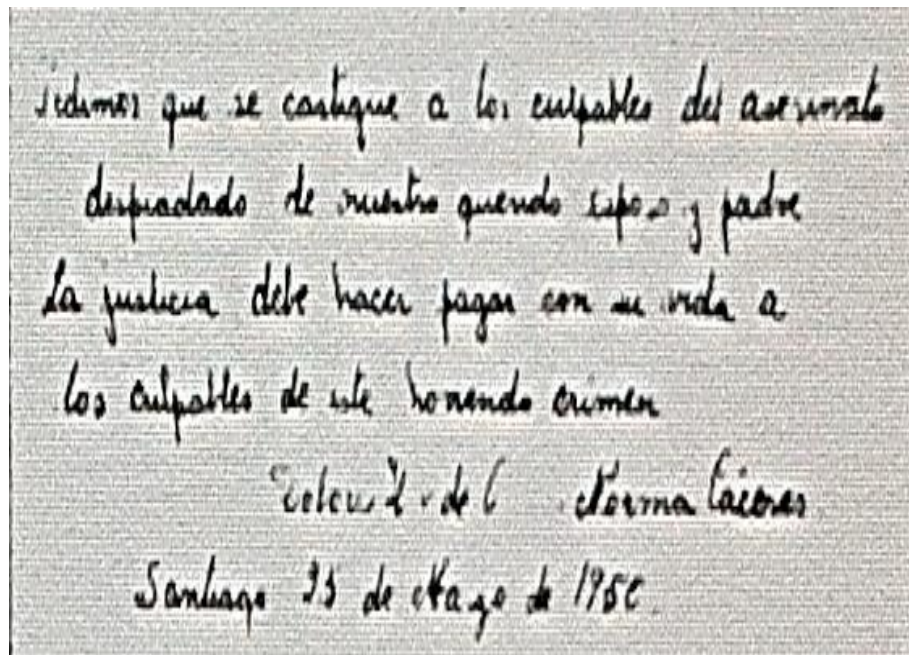 Pedimos que se castigue a los culpables del asesinato
despiadado de nuestro querido esposo y padre
La justicia debe hacer pagar con su vida a
los culpables de este horrendo crimen
de C Norma Cáceres
Santiago 23 de Mayo de